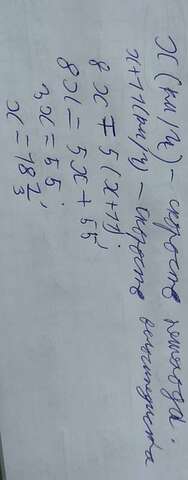 x (км/ч) – скорость пешехода.
x+11(км/ч) – скорость велосипедиста
8x = 5(x+11);
8x = 5x + 55;
3x = 55;
x = 18 1/3